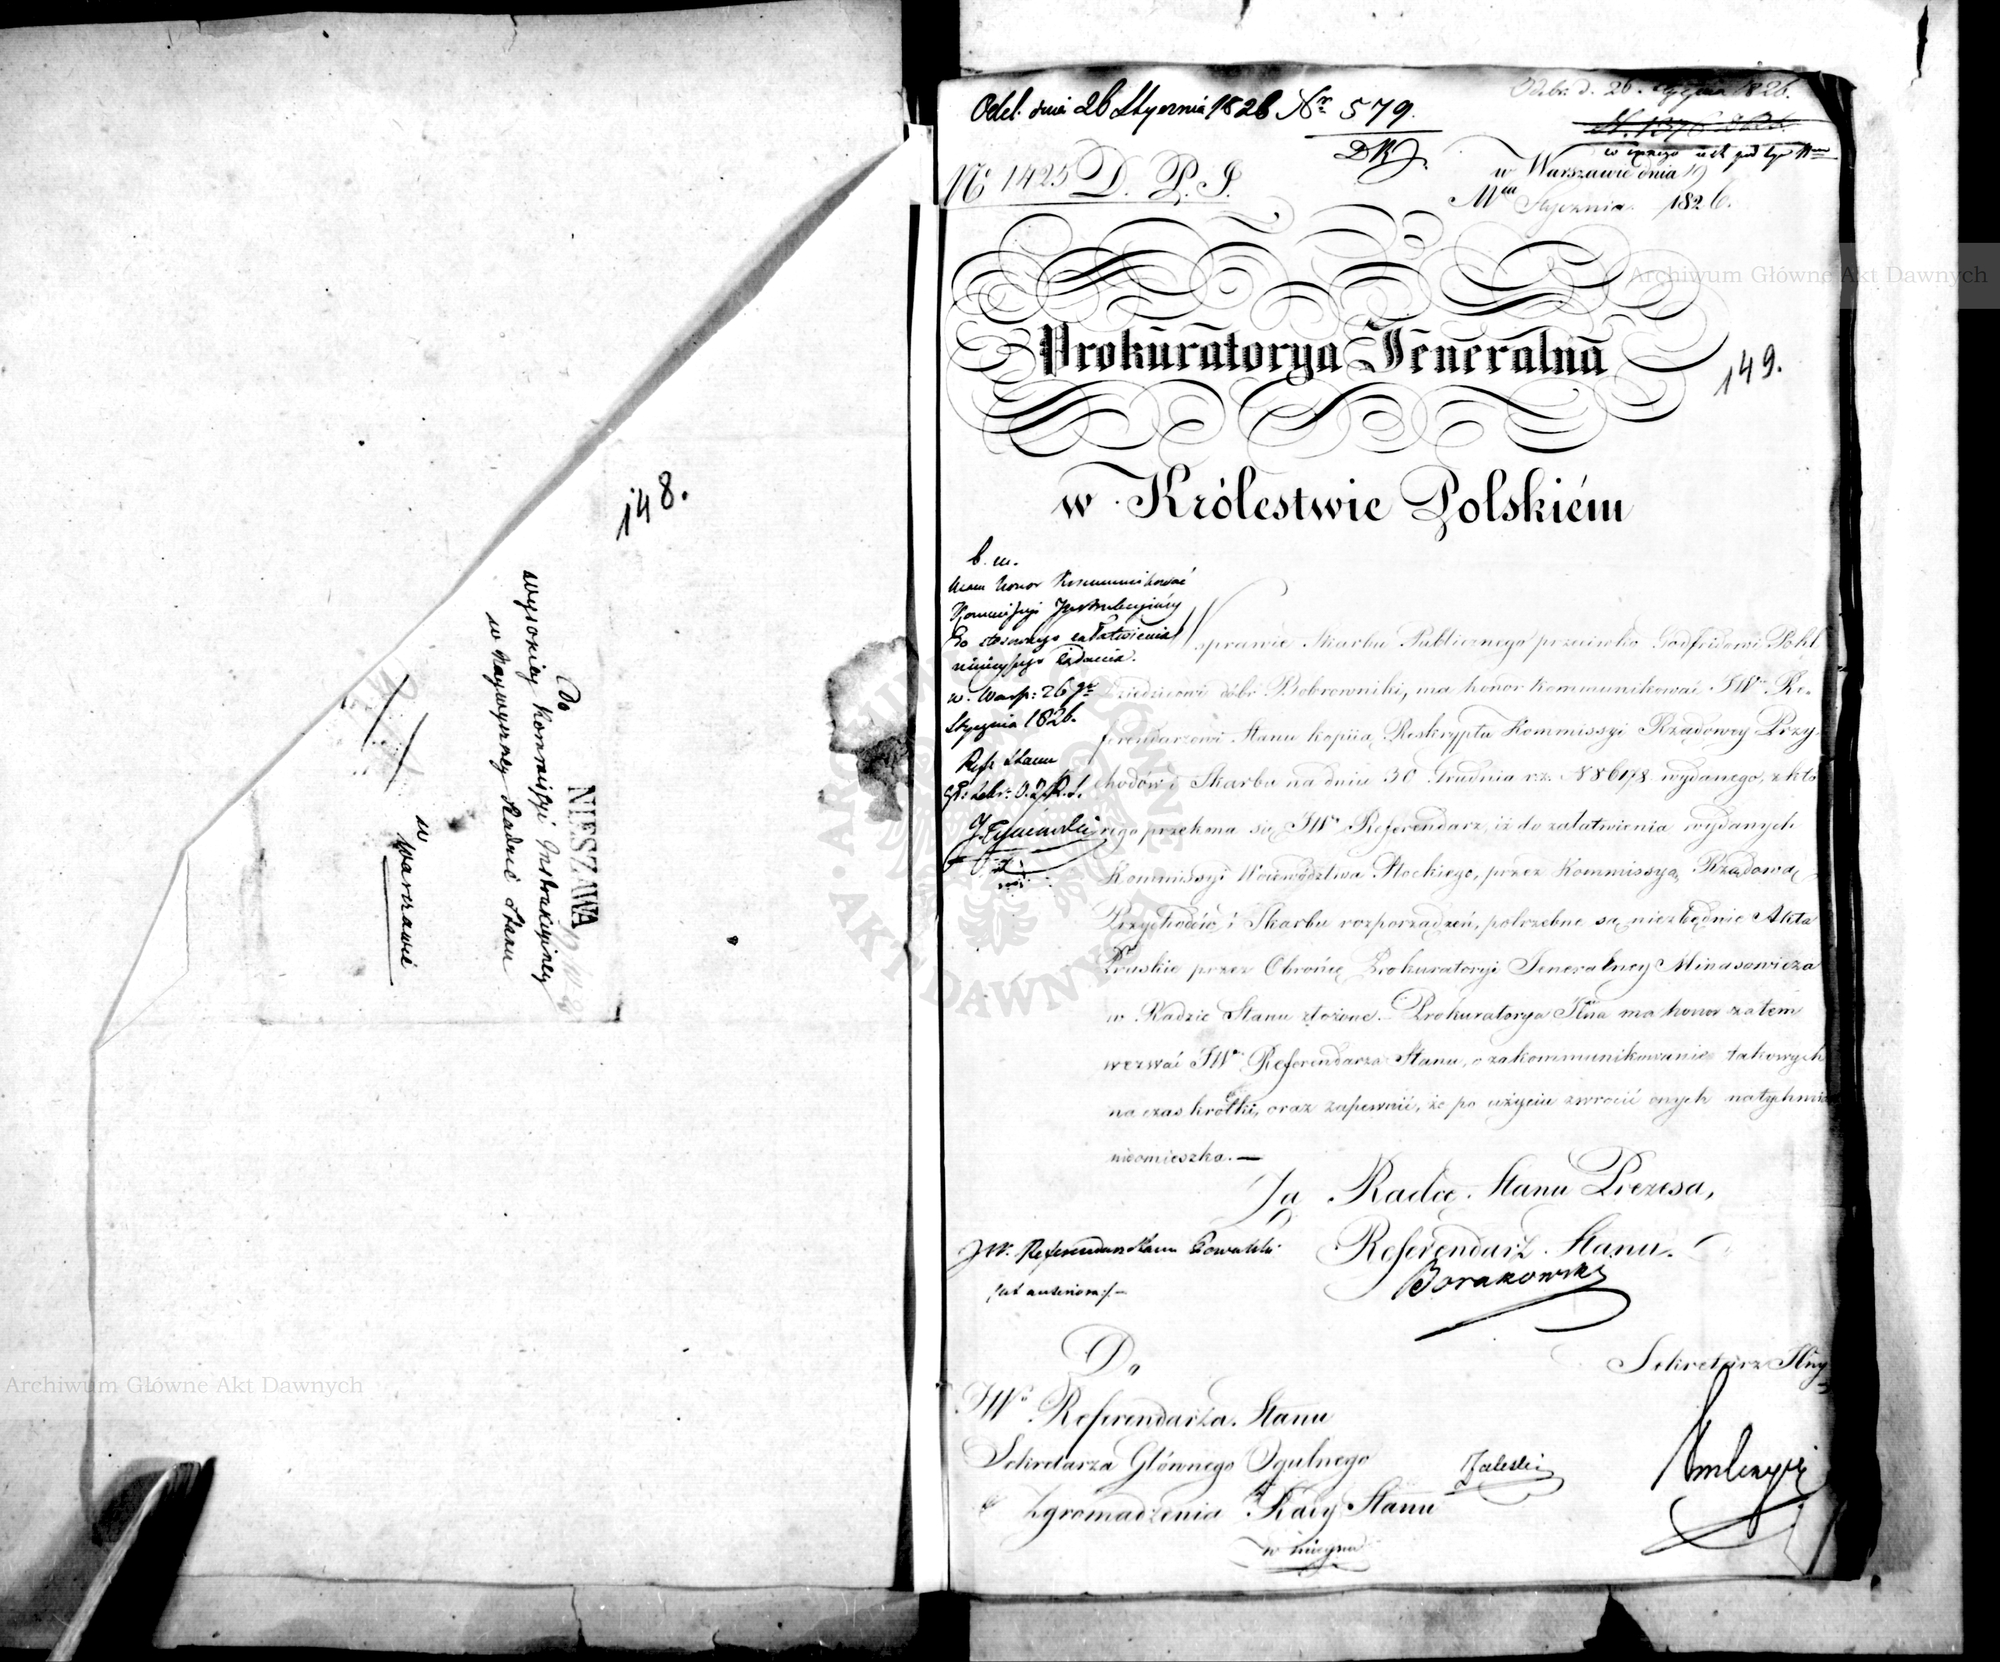 148.
Do
wysokiey Kommissyi Instrukcyiney
w Naywyzszey Radzie Stanu
w
Warszawie
NIESZAWA
Odel. dnia 26 Stycznia 1826 Nr 579.
Odebr. d. 26. stycznia 1826.
N° 1425 D. P. J.
w Warszawie dnia
Stycznia 1826.
149.
Prokuratorya Jeneralna
w Królestwie Polskiém
b. m.
Mam honor Kommunikować
Kommissyi Instrukcyiney
do stosownego załatwienia
ninieyszego żądania.
w Warsz: 26 go
Stycznia 1826.
Refr Stanu
W sprawie Skarbu Publicznego przeciwko Godfridowi Pohl
Dziedzicowi dóbr Bobrowniki, ma honor kommunikować JWu Re-
ferendarzowi Stanu kopiią Reskryptu Kommissyi Rządowey Przy-
chodów i Skarbu na dniu 30 Grudnia r.z. N 86178 wydanego, z któ
rego przekona się JW Referendarz, iż do załatwienia wydanych
Kommissyi Woiewództwa Płockiego, przez Kommissyą Rządową
Przychodów i Skarbu rozporządzeń, potrzebne są niezbędnie Akta
Pruskie przez Obrońcę Prokuratoryi Jeneralney Minasowicza
w Radzie Stanu złożone. Prokuratorya Jlna ma honor zatem
wezwać JWo Referendarza Stanu, o zakommunikowanie takowych
na czas krótki, oraz zapewnić, że po użyciu zwrócić onych natychmia
nieomieszka.—
Za Radcę Stanu Prezesa,
Referendarz Stanu.
JW. Referendarz Stanu Kowalski
Do
JWo Referendarza Stanu
Sekretarza Głównego Ogulnego
Zgromadzenia Rady Stanu
w mieyscu
Zaleski
Sekretarz Jlny
Archiwum Główne Akt Dawnych
Archiwum Główne Akt Dawnych